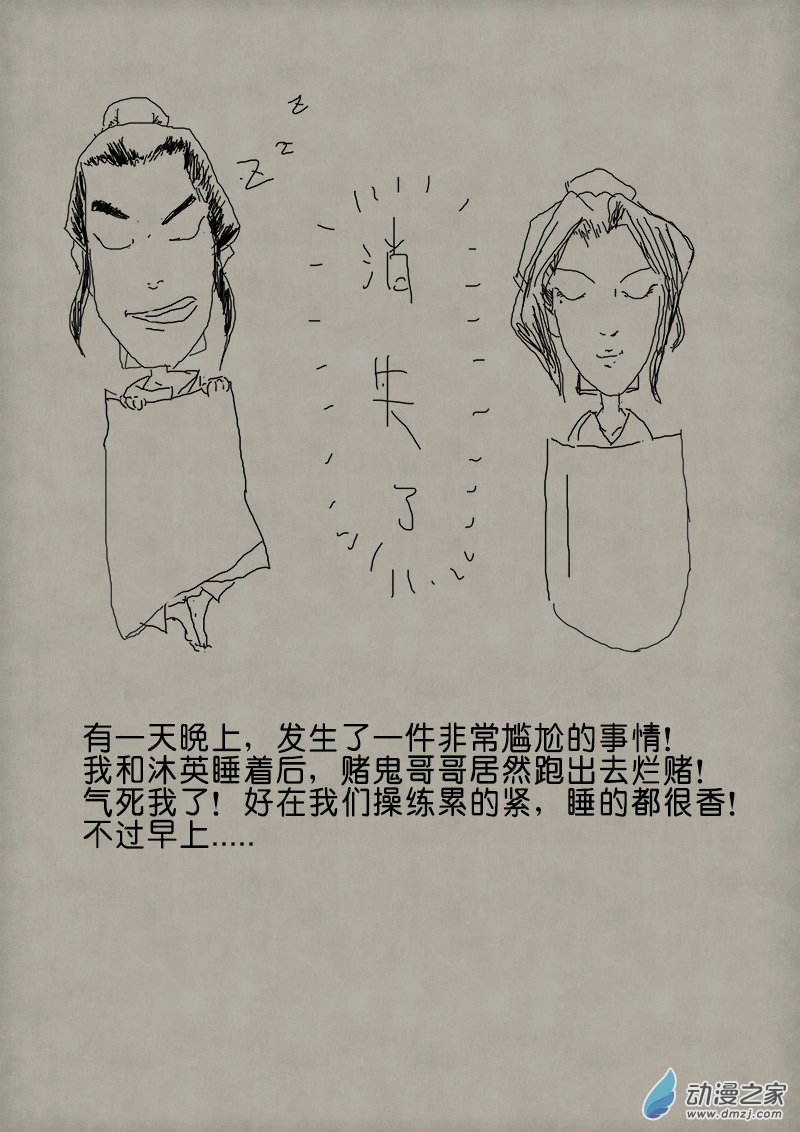 z
z
Z
消
失
了
有一天晚上，发生了一件非常尴尬的事情！
我和沐英睡着后，赌鬼哥哥居然跑出去烂赌！
气死我了！好在我们操练累的紧，睡的都很香！
不过早上.....
动漫之家
www.dmzj.com